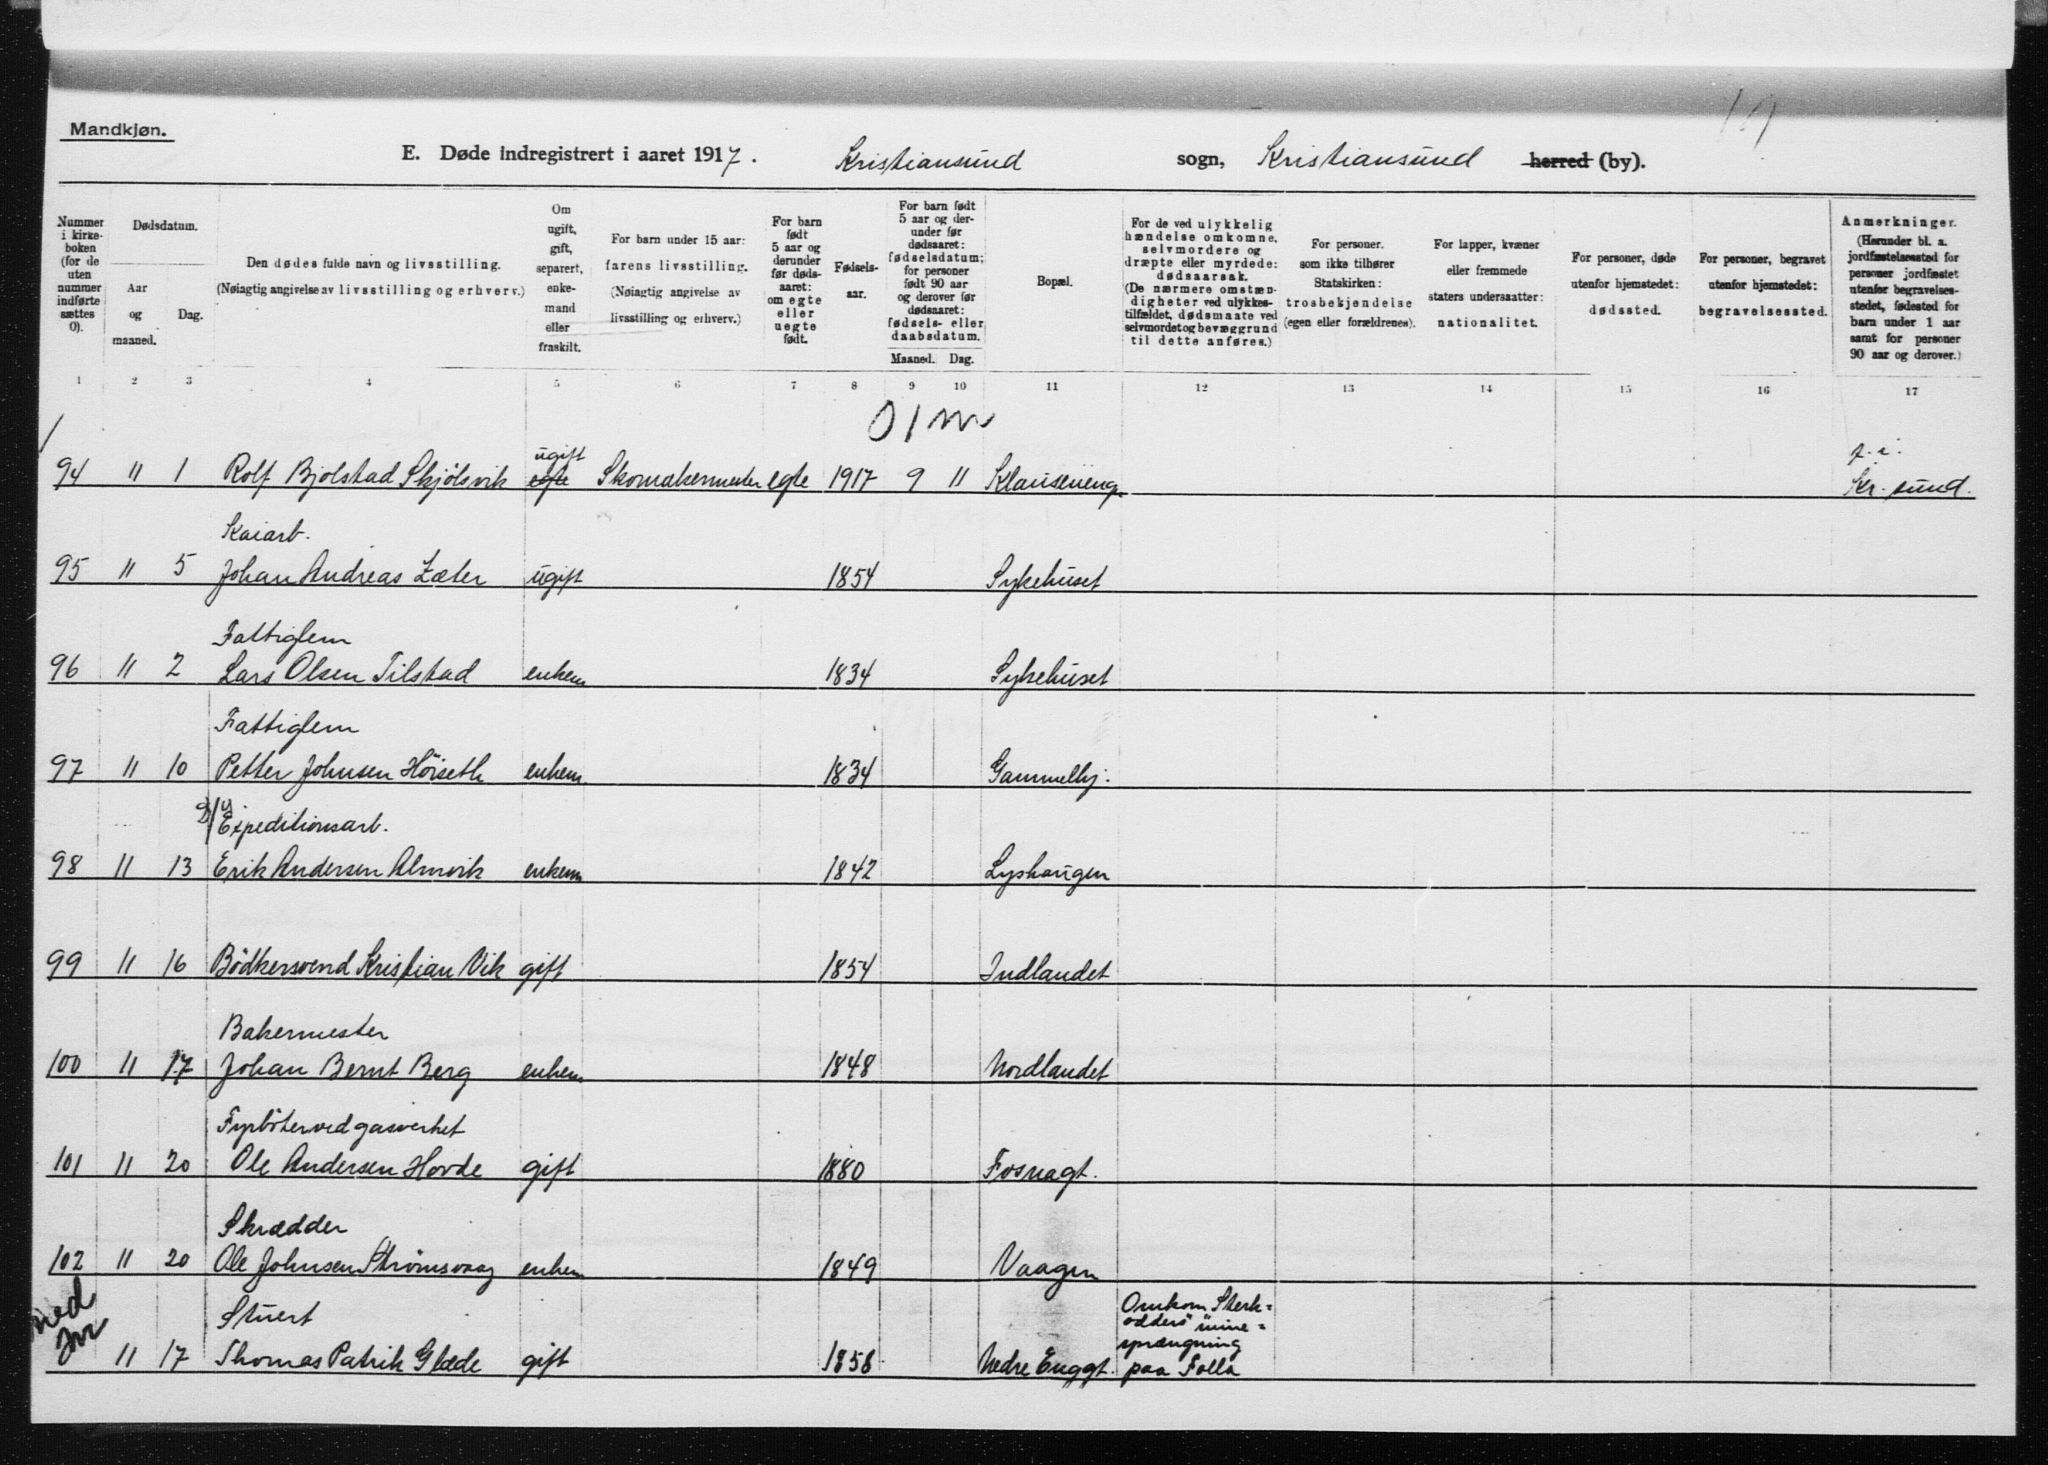 Mandkjøn.
E. Døde indregistrert i aaret 1917. Kristiansund sogn, Kristiansund herred (by).
Nummer i kirkeboken (for de uten nummer indførte sættes 0).
Dødsdatum.
Aar og maaned.
Dag.
Den dødes fulde navn og livsstilling.
(Nøiagtig angivelse av livsstilling og erhverv.)
Om ugift, gift, separert, enkemand eller fraskilt.
For barn under 15 aar: farens livsstilling.
(Nøiagtig angivelse av livsstilling og erhverv.)
For barn født 5 aar og derunder før dødsaaret: om egte eller uegte født.
Fødselsaar.
For barn født 5 aar og derunder før dødsaaret: fødselsdatum; for personer født 90 aar og derover før dødsaaret: fødsels- eller daabsdatum.
Maaned. Dag.
Bopæl.
For de ved ulykkelig hændelse omkomne, selvmordere og dræpte eller myrdede: dødsaarsak.
(De nærmere omstændigheter ved ulykkestilfældet, dødsmaate ved selvmordet og bevæggrund til dette anføres.)
For personer, som ikke tilhører Statskirken: trosbekjendelse (egen eller forældrenes).
For lapper, kvæner eller fremmede staters undersaatter: nationalitet.
For personer, døde utenfor hjemstedet: dødssted.
For personer, begravet utenfor hjemstedet: begravelsessted.
Anmerkninger.
(Herunder bl. a. jordfæstelsessted for personer jordfæstet utenfor begravelsesstedet, fødested for barn under 1 aar samt for personer 90 aar og derover.)
1 2 3 4 5 6 7 8 9 10 11 12 13 14 15 16 17
0 1 m
ugift
94 11 1 Rolf Bjolstad Skjølsvik egte Skomakermester egte 1917 9 11 Klauseneng. Kr.sund.
Kaiarb.
95 11 5 Johan Andreas Zæter ugift 1854 Sykehuset
Fattiglem
96 11 2 Lars Olsen Tilstad enkem 1834 Sykehuset
Fattiglem
97 11 10 Petter Johnsen Höiseth enkem 1834 Gammelby.
Expeditionsarb.
98 11 13 Erik Andersen Almvik enkem 1842 Lyshaugen
99 11 16 Bödkersvend Kristian Vik gift 1854 Indlandet
Bakermester
100 11 17 Johan Bernt Berg enkem 1848 Nordlandet
Fyrböter ved gasverket
101 11 20 Ole Andersen Hovde gift 1880 Fosnagt.
Skrædder
102 11 20 Ole Johnsen Strømsvaag enkem 1849 Vaagen
Stuert
11 17 Thomas Patrik Glæde gift 1858 Nedre Enggt.
Omkom Sterk=
odders" mine=
sprængning
paa Folla